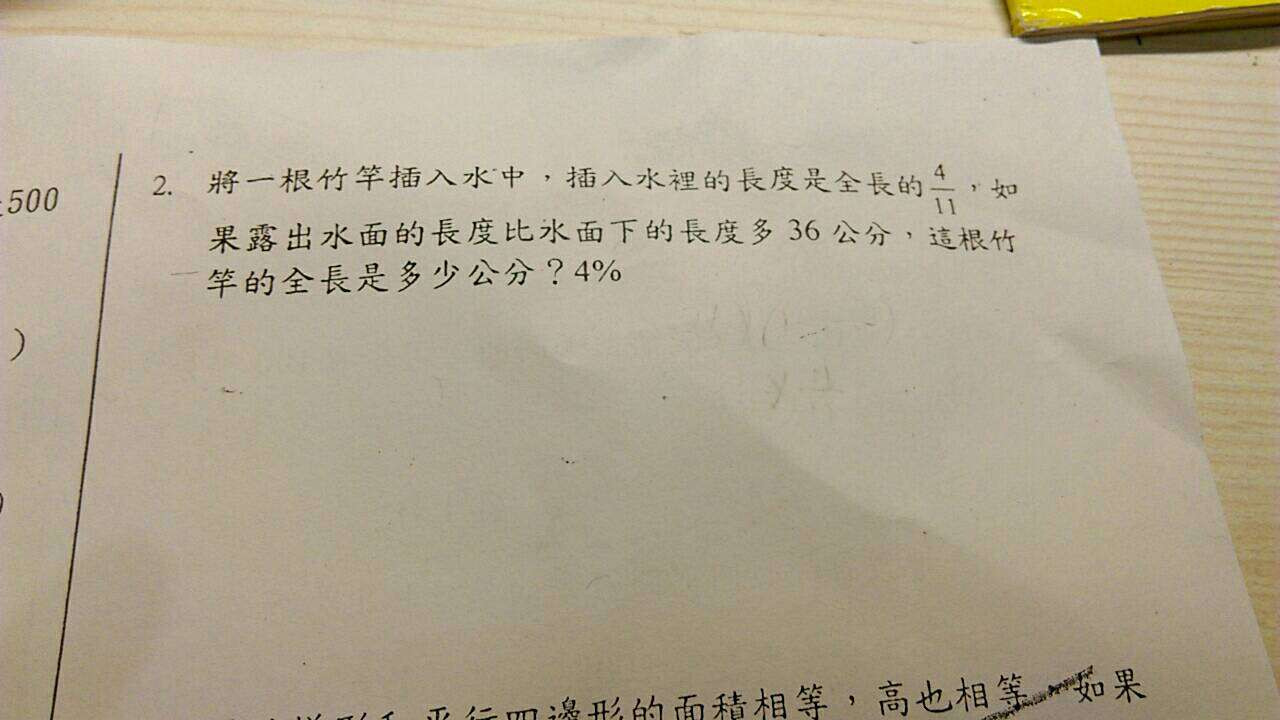 500
2. 將一根竹竿插入水中，插入水裡的長度是全長的4/11，如
果露出水面的長度比水面下的長度多 36 公分，這根竹
竿的全長是多少公分？4%
)
平行四邊形的面積相等，高也相等，如果